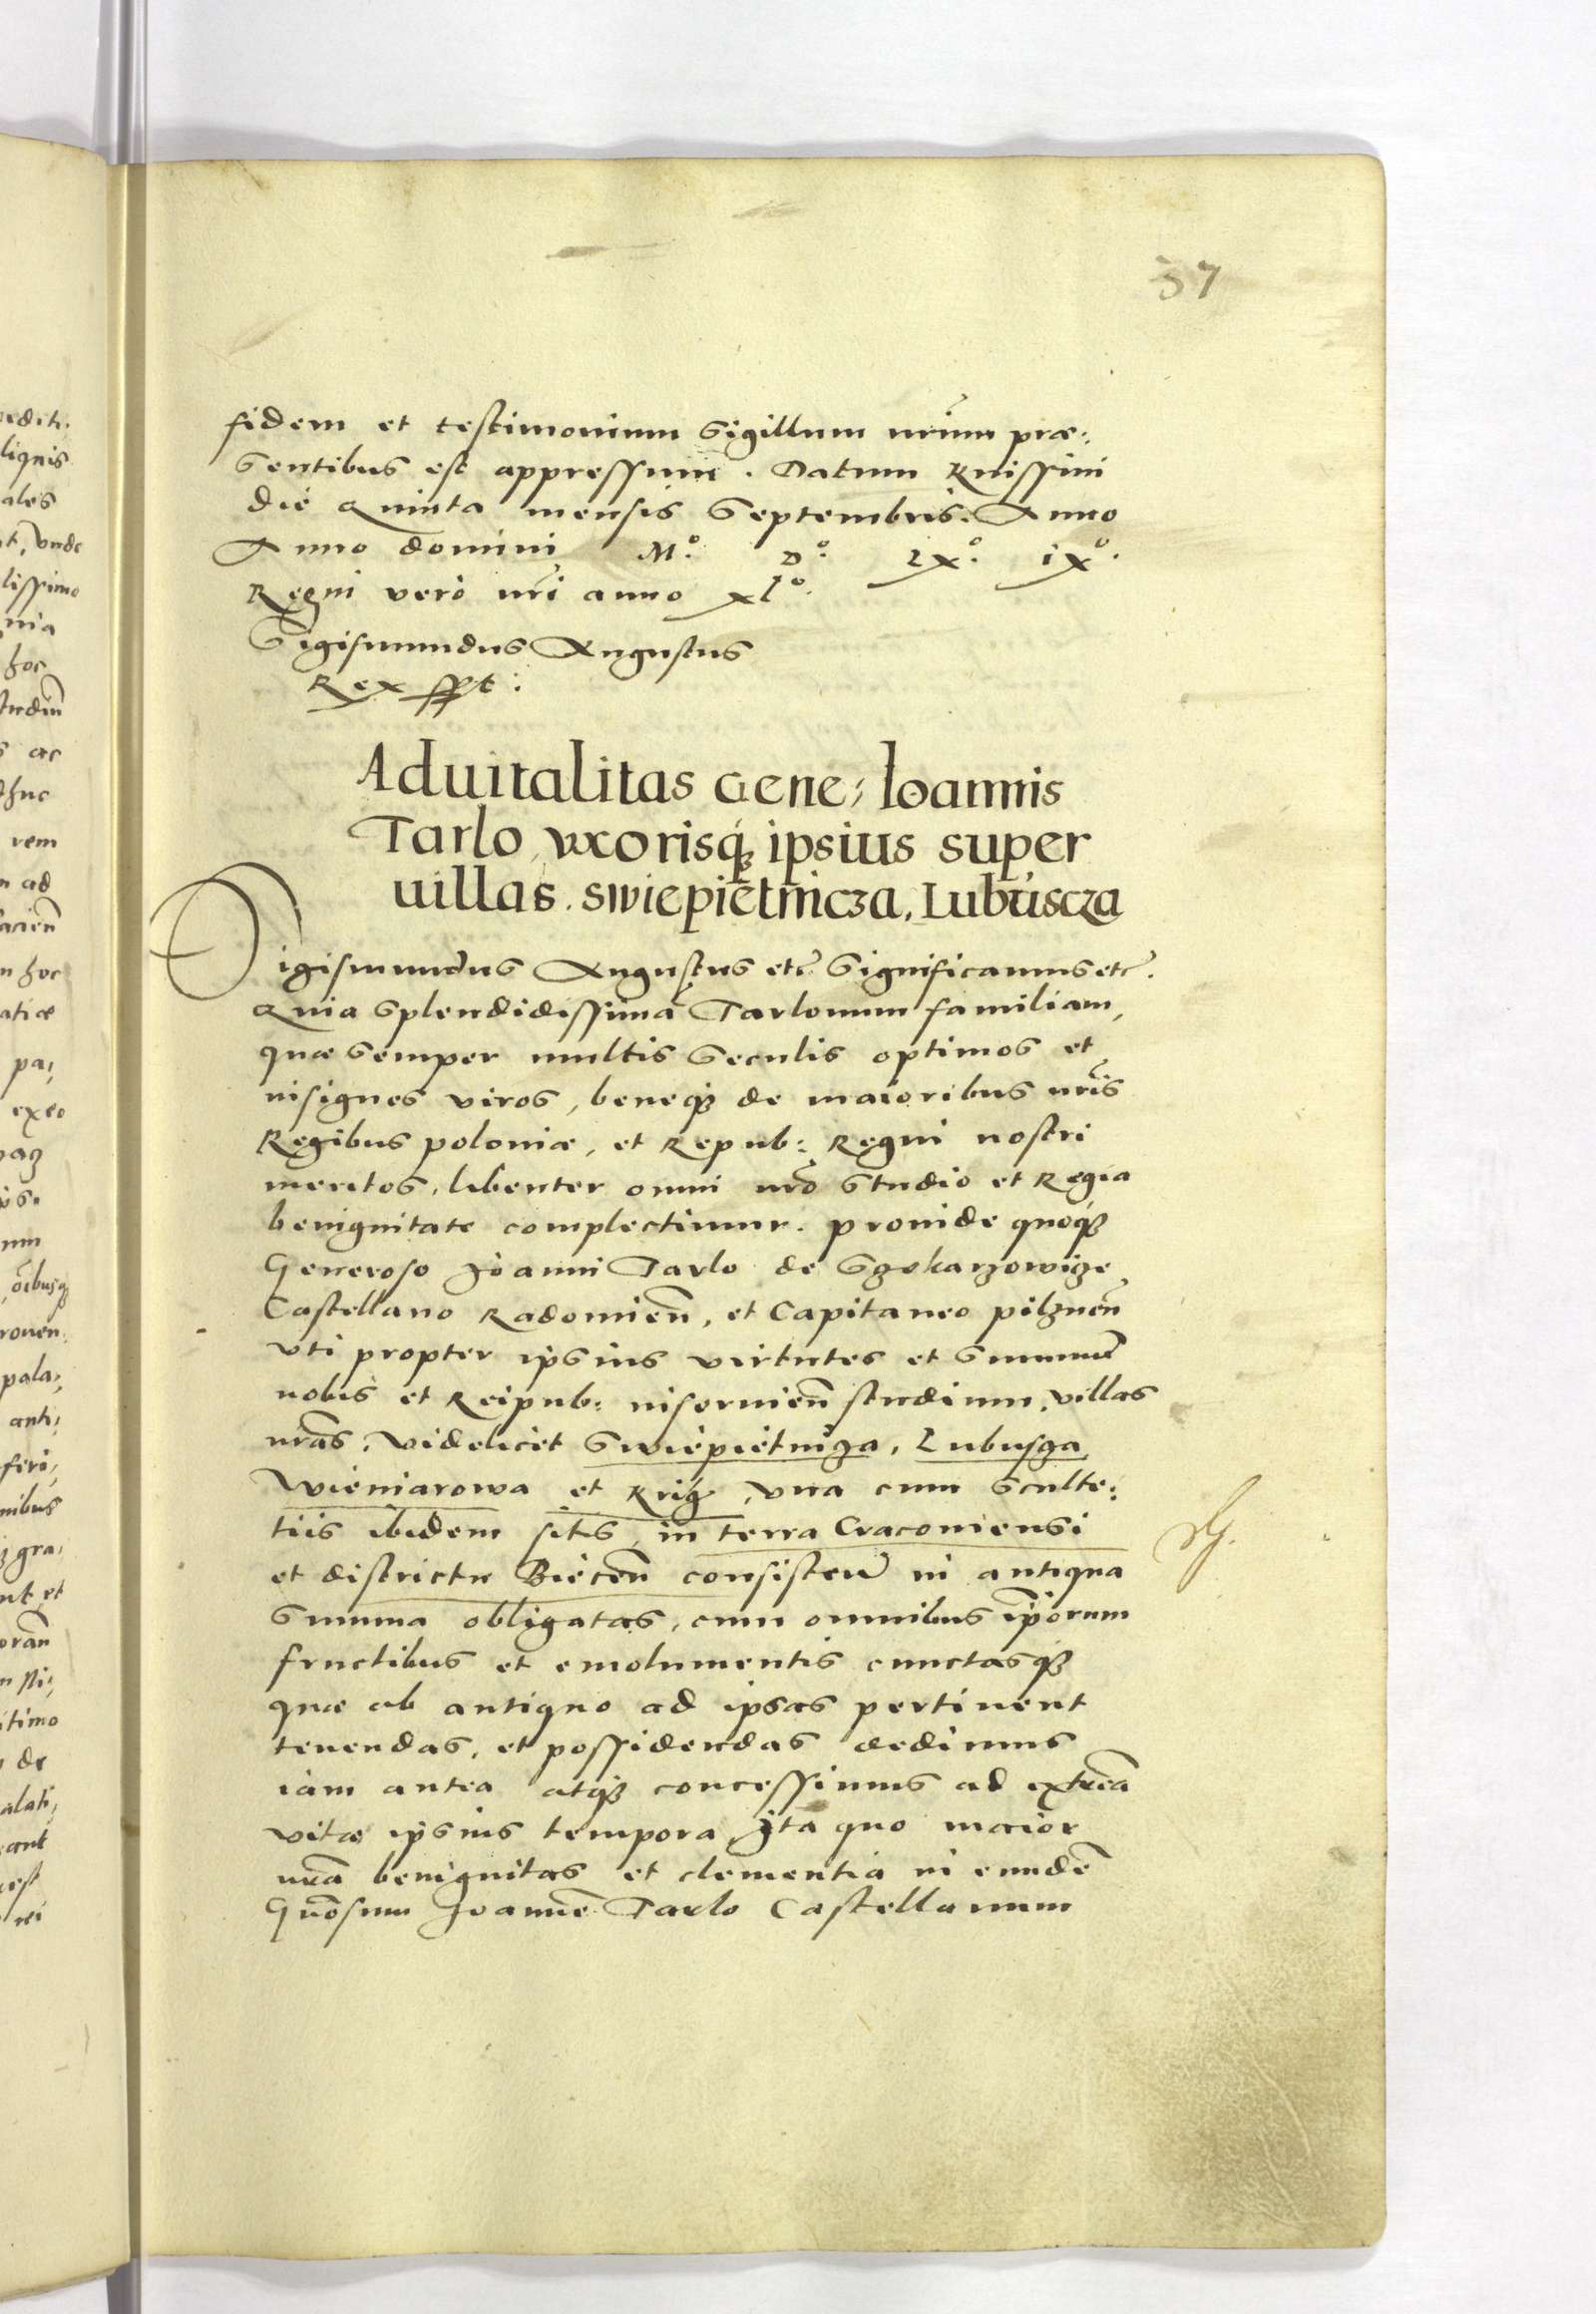 37
fidem et testimonium Sigillum nr̃um præ:
Sentibus est appressum. Datum Knissini
die Quinta mensis Septembris. Anno
Anno domini M.º D.º LX.º iXº.
Regni vero nr̃i anno xlº.
Sigismundus Augustus
Rex sspt:
Aduitalitas Gene; Ioannis
Tarlo, vxorisqꝫ ipsius super
uillas. Swiepietnicza, Lubuscza
Sigismundus Augustus etc̃. Significamus etc̃.
Quia Splendidissimã Tarlonum familiam,
quæ Semper multis Seculis optimos et
insignes viros, beneqꝫ de maioribus nr̃is
Regibus poloniæ, et Repub: Regni nostri
meritos, libenter omni nr̃o Studio et Regia
benignitate complectimur. prouide quoqꝫ
Generoso Joanni Tarlo de Sczekarzowicze
Castellano Radomien̄, et Capitaneo pilznen̄
vti propter ipsius virtutes et Summum̄
nobis et Reipub: inseruien̄ studium, villas
nr̃as, videlicet Swiepietnicza, Lubuscza
Wieniarowa et Knicz, vna cum Sculte:
tiis ibidem sitis, in terra Cracouiensi
et districtu Biecen̄ consisten̄ in antiqua
Summa obligatas, cum omnibus ip̄orum
fructibus et emolumentis cunctasqꝫ
quæ ab antiquo ad ipsas pertinent
tenendas, et possidendas dedimus
iam antea atqꝫ concessimus ad extrēa
vitæ ipsius tempora, Ita quo maior
nr̃a benignitas et clementia in eundē
Gñosum Joannē Tarlo Castellanum